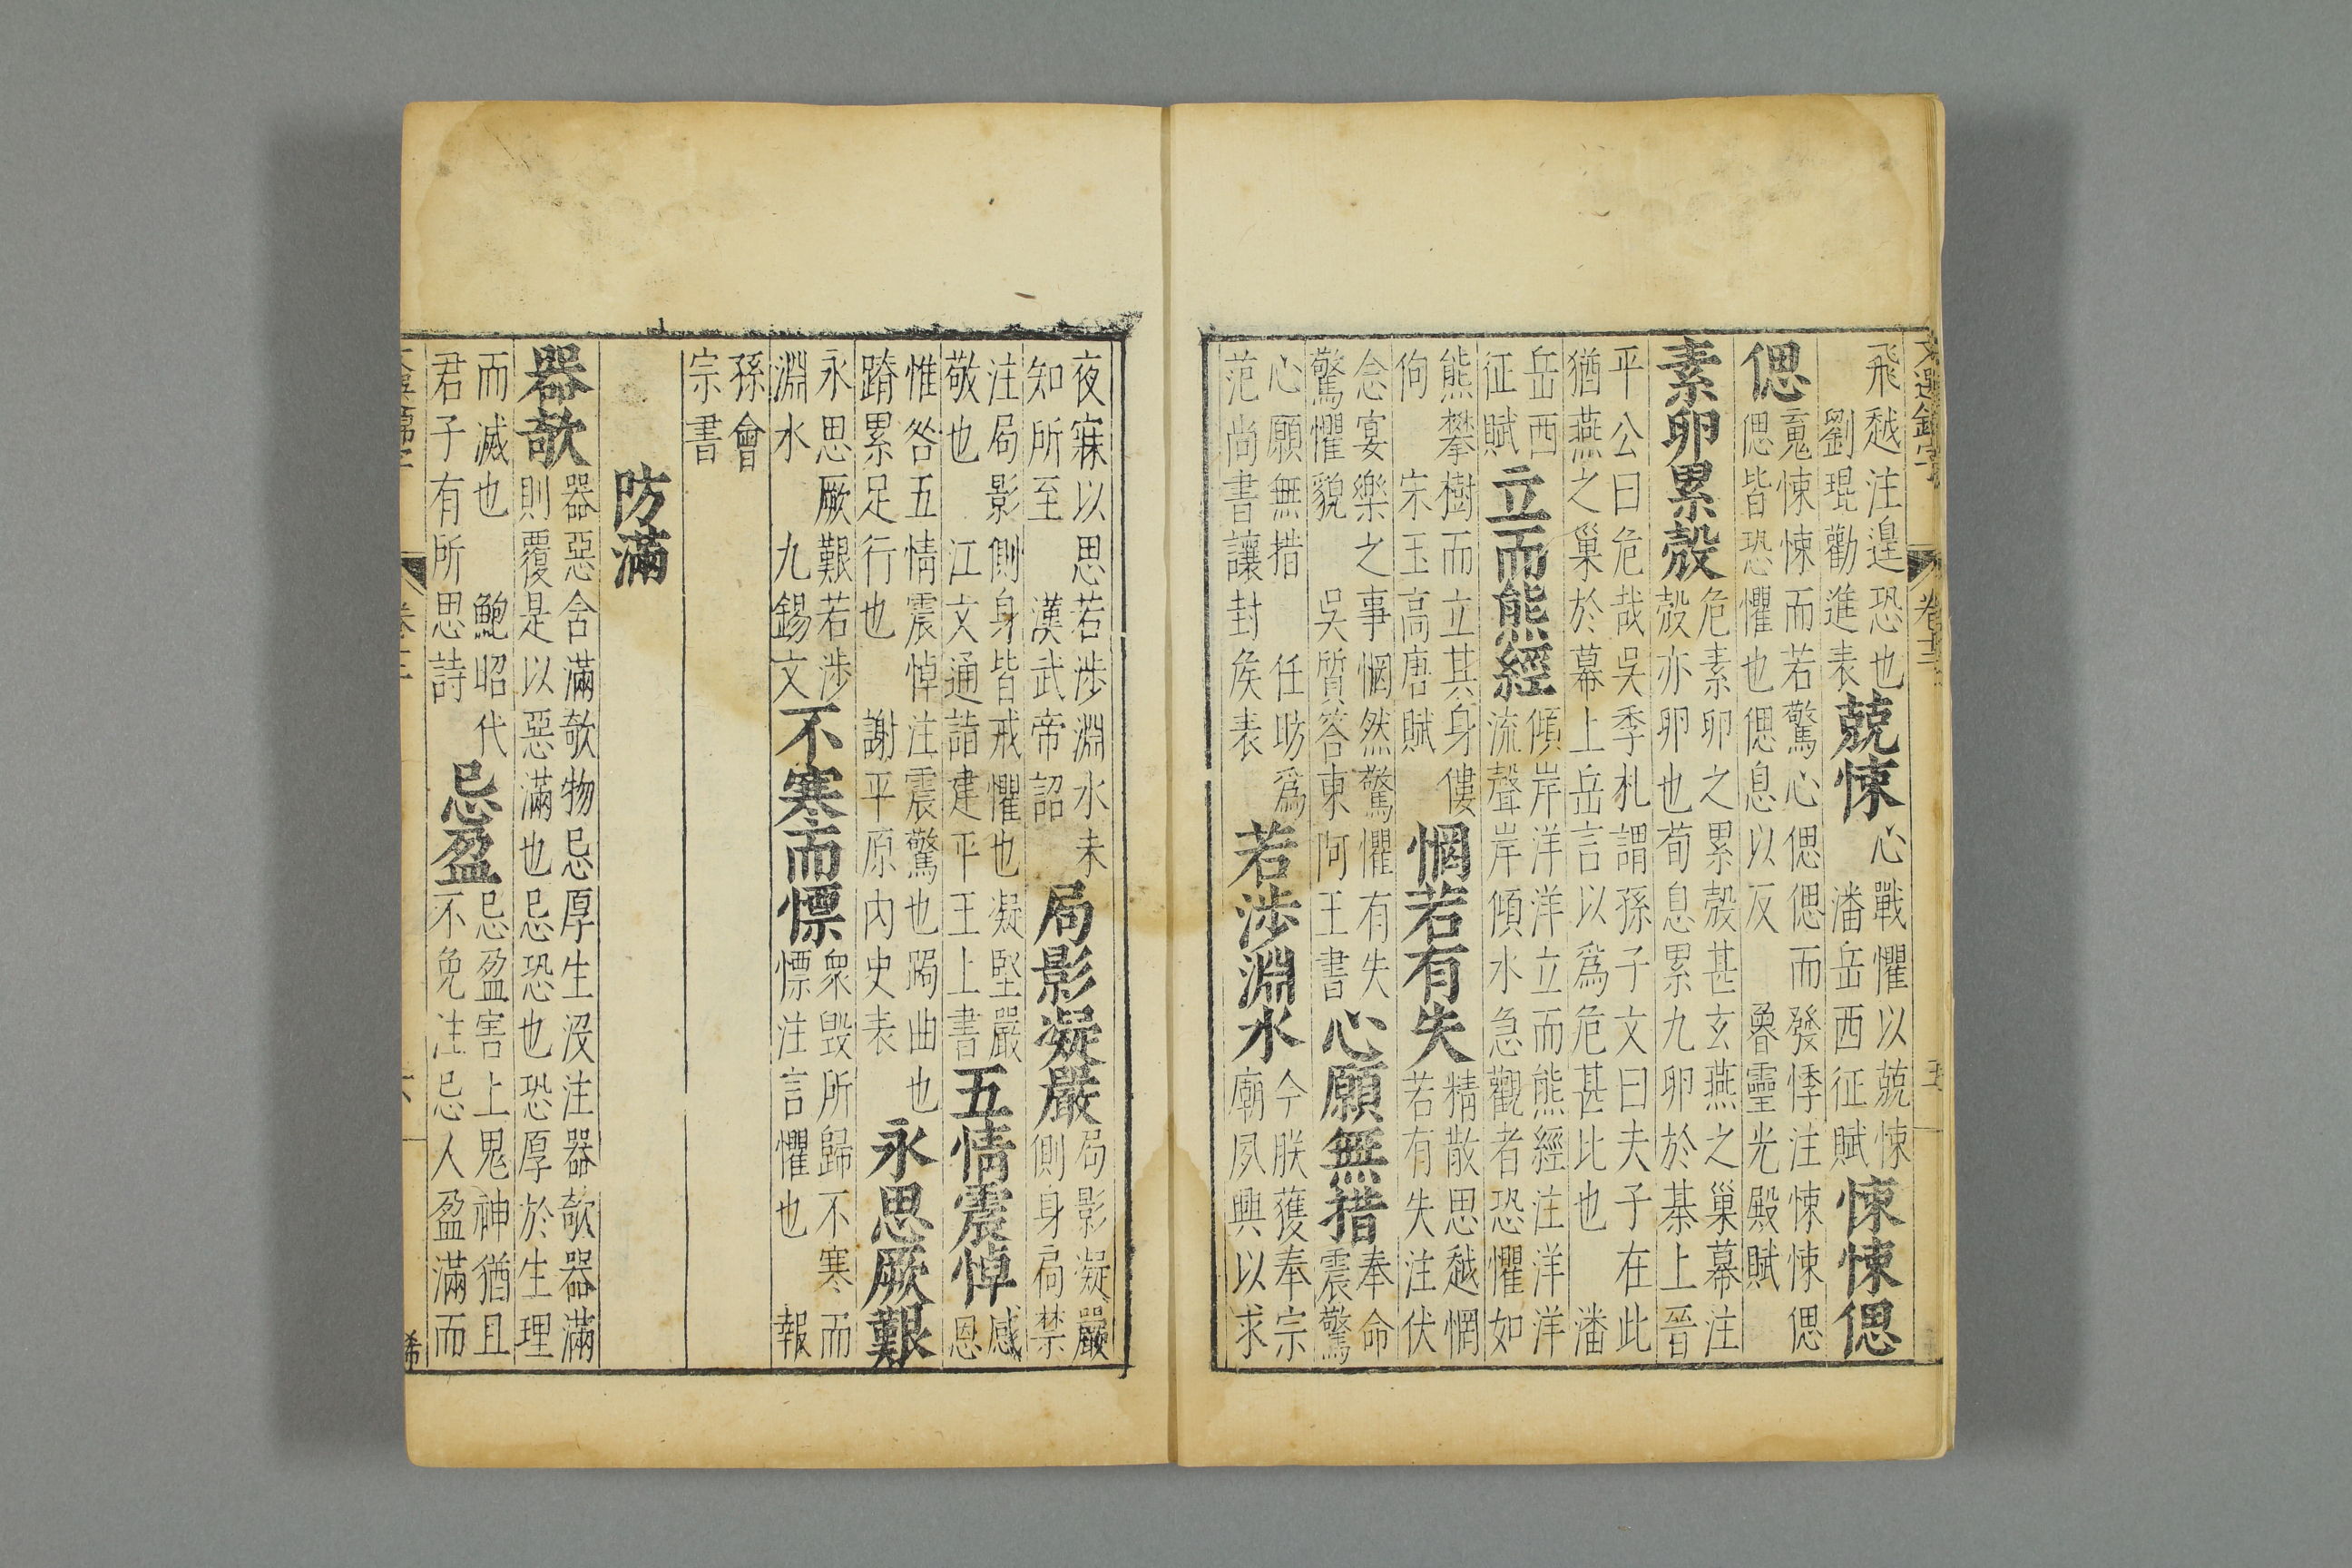 文選錦字 卷十三 五
飛越注遑恐也劉琨勸進表兢悚心戰懼以兢悚潘岳西征賦悚悚偲
偲䰟悚悚而若驚心偲偲而發悸注悚悚偲偲皆恐懼也偲息以反魯靈光殿賦
素卵累殻危素卵之累殻甚玄燕之巢幕注殻亦卵也荀息累九卵於棊上晉
平公曰危哉吳季札謂孫子文曰夫子在此猶燕之巢於幕上岳言以爲危甚比也潘
岳西征賦立而熊經傾岸洋洋立而熊經注洋洋流聲岸傾水急觀者恐懼如
熊攀樹而立其身僂佝宋玉高唐賦惘若有失精散思越惘若有失注伏
念宴樂之事惘然驚懼有失驚懼貌吳質答東阿王書心願無措奉命震驚
心願無措任昉爲范尚書讓封矦表若涉淵水今朕獲奉宗廟夙興以求
夜寐以思若涉淵水未知所至漢武帝詔局影凝嚴局影凝嚴側身扃禁
注局影側身皆戒懼也凝堅嚴敬也江文通詣建平王上書五情震悼感恩
惟咎五情震悼注震驚也跼曲也蹐累足行也謝平原內史表永思厥艱
永思厥艱若涉淵水九錫文不寒而慄衆毀所歸不寒而慄注言懼也報
孫會宗書
防滿
器欹器惡含滿欹物忌厚生没注器欹器滿則覆是以惡滿也忌恐也恐厚於生理
而滅也鮑昭代君子有所思詩忌盈忌盈害上鬼神猶且不免注忌人盈滿而